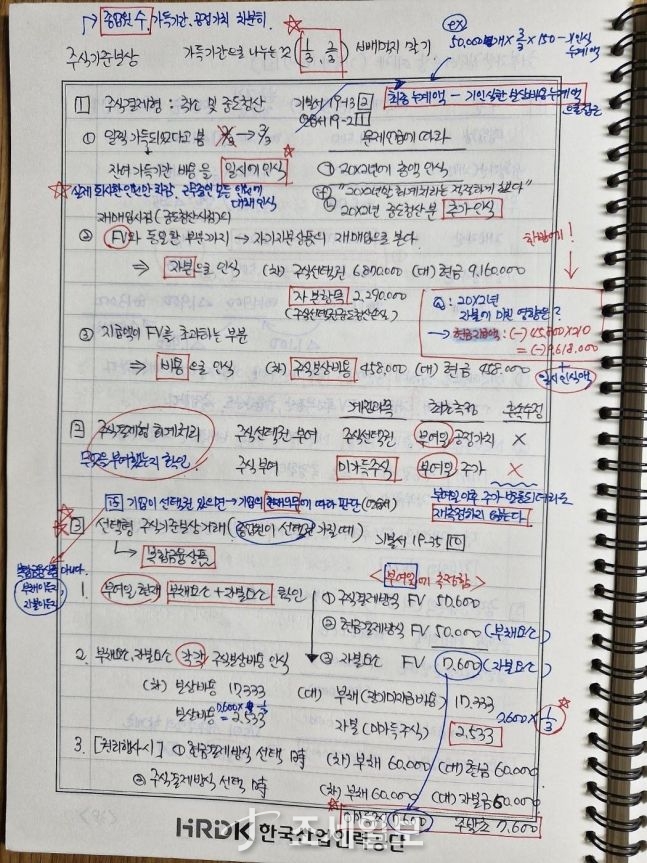 종업원 수, 가득기간, 공정가치 차분히
ex
50,000 × 3/3 × 150 - 기인식 누계액
주식기준보상
가득기간으로 나누는 것 (1/3, 2/3) 빼먹지 말기
최종 누계액 - 기인식한 보상비용누계액
으로 접근
1 주식결제형 : 취소 및 중도청산
기본서 19-13 2
19-2 1
① 일찍 가득되었다고 봄 → 3/3
문제 언급에 따라
잔여 가득기간 비용을 일시에 인식
㉠ 20X2년에 총액 인식
"20X2년말 회계처리는 적절하게 했다"
20X2년 중도청산분 추가인식
재매입시점(중도청산시점)의
② FV와 동일한 부분까지 → 자기지분상품의 재매입으로 본다.
차감에!
⇒ 자본으로 인식 (차) 주식선택권 6,870,000 (대) 현금 9,160,000
자본항목 2,290,000
(주식선택권중도청산손실)
Q : 20X2년
자본에 미친 영향은?
→ 현금지급액 : (-) 45,800×210
= (-) 9,618,000
+
일시인식액
③ 지급액이 FV를 초과하는 부분
⇒ 비용으로 인식 (차) 주식보상비용 458,000 (대) 현금 458,000
계정과목 최초측정 후속측정
2 주식결제형 회계처리
주식선택권 부여 주식선택권 부여일 공정가치 X
무엇을 부여했는지 확인.
주식 부여 미가득주식 부여일 주가 X
부여일 이후 주가 변동되더라도
재측정하지 않는다
15 기업이 선택권 있으면 → 기업의 현재의무에 따라 판단
3 선택형 주식기준보상거래 (종업원이 선택권 가질 때)
기본서 19-35 10
복합금융상품
복합금융상품 아니다.
부채이든지
자본이든지
1. 부여일 현재 부채요소 + 자본요소 확인
<부여일에 측정함>
① 주식결제방식 FV 50,600
② 현금결제방식 FV 50,000 (부채요소)
③ 자본요소 FV 7,600 (자본요소)
2. 부채요소, 자본요소 각각 주식보상비용 인식
(차) 보상비용 17,333 (대) 부채(장기미지급비용) 17,333
7,600 × 1/3
보상비용 2,533 자본(미가득주식) 2,533
7,600 × 1/3
3. [권리행사시] ① 현금결제방식 선택 時 (차) 부채 60,000 (대) 현금 60,000
② 주식결제방식 선택 時 (차) 부채 60,000 (대) 자본금 60,000
7,600 주발초 7,600
HRDK 한국산업인력공단
조세일보